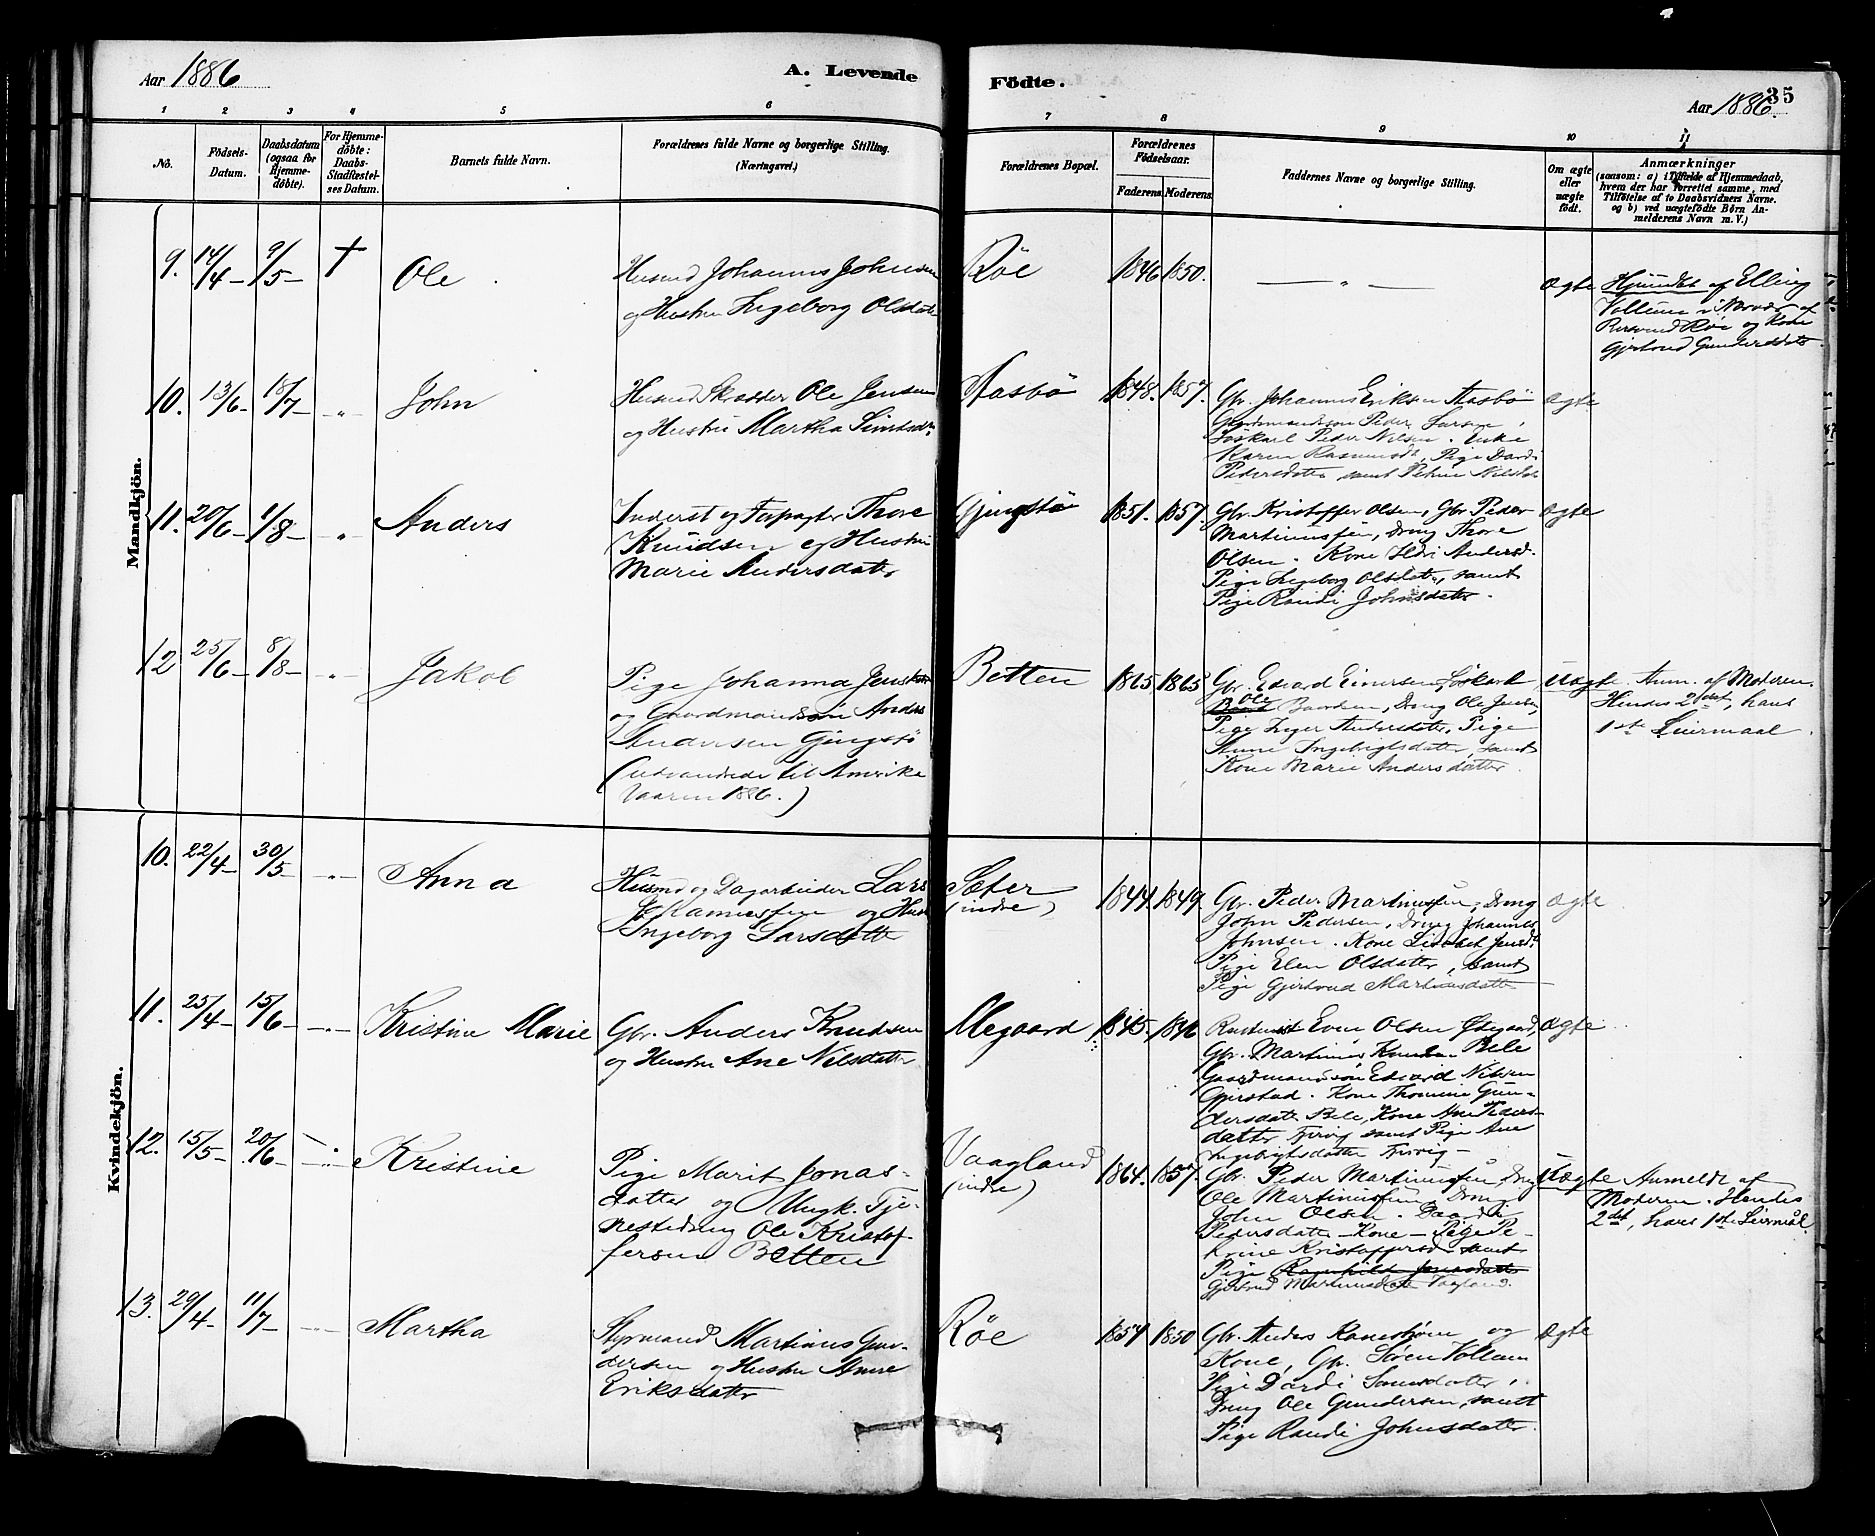 Aar 1886
A. Levende
Födte.
Aar 1886.
35
1 2 3 4 5 6 7 8 9 10 11
No.
Födsels-
Datum.
Daabsdatum
(ogsaa for
Hjemme-
döbte).
For Hjemme-
döbte:
Daabs-
Stadfæstel-
ses Datum.
Barnets fulde Navn.
Forældrenes fulde Navne og borgerlige Stilling.
(Næringsvei.)
Forældrenes Bopæl.
Forældrenes
Födselsaar.
Faderens. Moderens.
Faddernes Navne og borgerlige Stilling.
Om ægte
eller
uægte
födt.
Anmærkninger
(saasom: a) i Tilfælde af Hjemmedaab,
hvem der har forrettet samme, med
Tilföielse af to Daabsvidners Navne.
og b) ved uægtefödte Börn An-
melderens Navn m. V.)
Mandkjön.
9. 14/4 - 9/5 - † Ole
Husmd Johannes Johnsen
og Hustru Ingeborg Olsdatter
Röe 1846 1850. — „ — ægte
af Elling
Röe og Kone
Gjertrud Gundersdatter
10. 13/6 - 18/7 - „ John
Husmd Skrædder Ole Jensen
og Hustru Martha
Aasbö 1848. 1857.
Gbr. Johannes Eriksen Aasbö
Gaardmandssön Peder Larsen,
Löskarl Peder Nilsen. Enke
Karen Rasmusdt, Pige Dardi
Pedersdatter samt Petrine Nilsdat
ægte
11. 20/6 - 1/8 - „ Anders
Inderst og Forpagter Thore
Knudsen og Hustru
Marie Andersdatter
Gjengstö 1851. 1857.
Gbr. Kristoffer Olsen, Gbr Peder
Martinussen, Dreng Thore
Olsen. Kone Ildri Andersd.
Pige Ingeborg Olsdatter, samt
Pige Randi Johnsdatter.
ægte
12 25/6 - 8/8 - „ Jakob
Pige Johanna
og Gaardmandssön Anders
Andersen Gjengstö
(udvandrede til Amerika
Vaaren 1886.)
Betten 1865 1865
Gbr. Edvard Einersen, Löskarl
Ole Baardsen, Dreng Ole Jensen,
Pige Inger Andersdatter, Pige
Anne Ingebrigtsdatter, samt
Kone Marie Andersdatter.
Uægte. Anm. af Moderen.
Hendes 2det, hans
1ste Leiermaal.
Kvindekjön.
10. 22/4 - 30/5 - „ Anna
Husmd og Dagarbeider Lars
og Hust
Ingeborg Larsdatter
Sæter
(indre)
1844. 1849.
Gbr. Peder Martinussen, Dreng
John Pedersen, Dreng Johannes
Johnsen. Kone Lisabet Jensd.
Pige Elen Olsdatter, samt
Pige Gjertrud Martinusdatter
ægte
11. 25/4 - 15/6 - „ Kristine Marie
Gbr. Anders Knudsen
og Hustru Ane Nilsdatter
Megaard 1845, 1846
Even Olsen Östgaard,
Gbr. Martinus Knudsen Bele
Gaardmandssön Edvard Nilsen
Gjerstad. Kone Thomine Gun-
dersdatter Bele, Kone Ane Peders-
datter samt Pige Ane
Ingebrigtsdatter
ægte
12. 15/5 - 20/6 - „ Kristine
Pige Marit Jonas-
datter og Ungk. Tje-
nestedreng Ole Kristof-
fersen Betten
Vaagland
(indre)
1864. 1857.
Gbr. Peder Martinussen, Dreng
Ole Martinussen, Dreng
John Olsen. Daardi
Pedersdatter - Kone - Pige Pe-
trine Kristoffersd. samt
Pige Ragnhild Jonasdatter
Gjertrud Martinusdatter Vagland.
Uægte Anmeldt af
Moderen. Hendes
2det, hans 1ste Leiermål.
13. 29/4 - 11/7 - „ Martha
Styrmand Martinus Gun-
dersen og Hustru Anne
Eriksdatter
Röe 1857 1850
Gbr. Anders og
Kone, Gbr. Sören Vollum
Pige Dardi
Dreng Ole Gundersen, samt
Pige Randi Johnsdatter
ægte